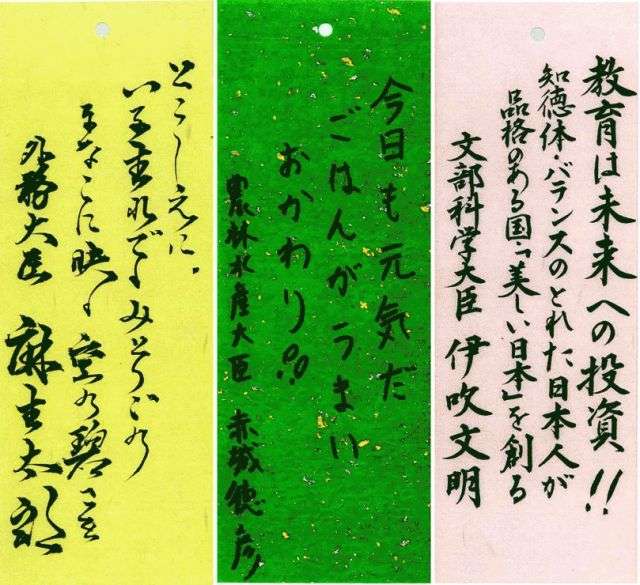 教育は未来への投資!!
知徳体・バランスのとれた日本人が
品格のある国・「美しい日本」を創る
文部科学大臣 伊吹文明
今日も元気だ
ごはんがうまい
おかわり!!
農林水産大臣 赤城徳彦
とこしえに、
いま生れでしみどりごの
まなこに映る 空の碧さを
外務大臣 麻生太郎